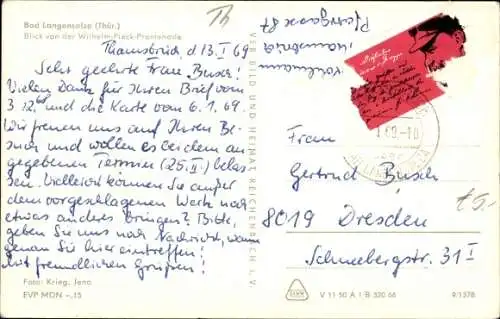 Bad Langensalza (Thür.)
Blick von der Wilhelm-Pieck-Promenade
Th
Thamsbrück, d. 13. I 69
Sehr geehrte Frau Busch!
Vielen Dank für Ihren Brief vom
und die Karte vom 6. 1. 69.
Wir freuen uns auf Ihren Be-
such und wollen es bei dem an-
gegebenen Termin (25. II) belas-
sen. Vielleicht können Sie außer
dem vorgeschlagenen Werk noch
etwas anderes bringen? Bitte,
geben Sie uns noch Nachricht, wann
genau Sie hier eintreffen!
Mit freundlichen Grüßen!
Foto: Krieg, Jena
EVP MDN -,15
VEB BILD UND HEIMAT REICHENBACH I. V.
Thamsbrück
Frau
Gertrud Busch
8019 Dresden
Schneebergstr. 31 I
€5,-
V 11 50 A 1/B 520 66
9/1578